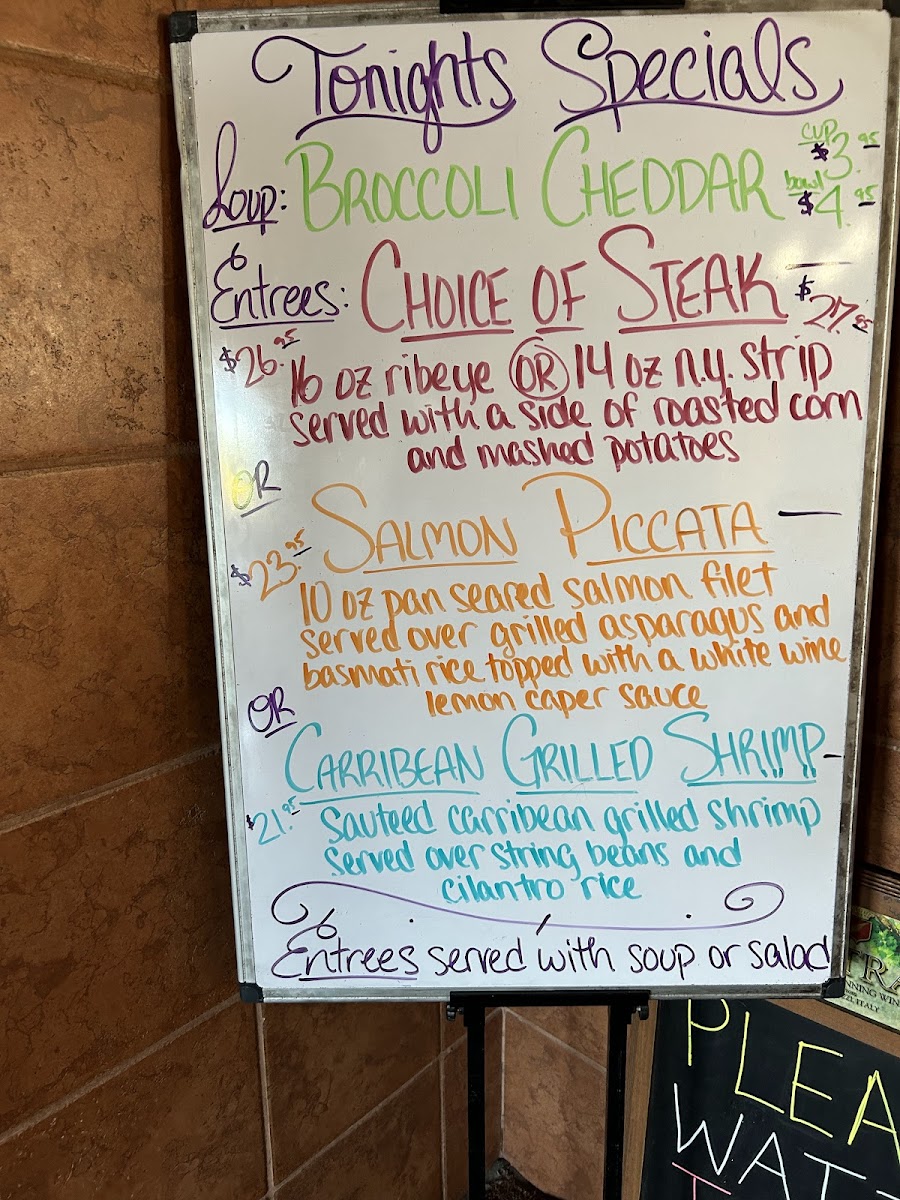 Tonights Specials
Soup: BROCCOLI CHEDDAR cup $3.95
bowl $4.95
Entrees: CHOICE OF STEAK $27.95
$26.95 16 oz ribeye OR 14 oz n.y. strip
served with a side of roasted corn
and mashed potatoes
OR
SALMON PICCATA
$23.95
10 oz pan seared salmon filet
served over grilled asparagus and
basmati rice topped with a white wine
lemon caper sauce
OR
CARRIBEAN GRILLED SHRIMP
$21.95 sauteed carribean grilled shrimp
served over string beans and
cilantro rice
Entrees served with soup or salad
NNING WIN
ITALY
PLEA
WAT